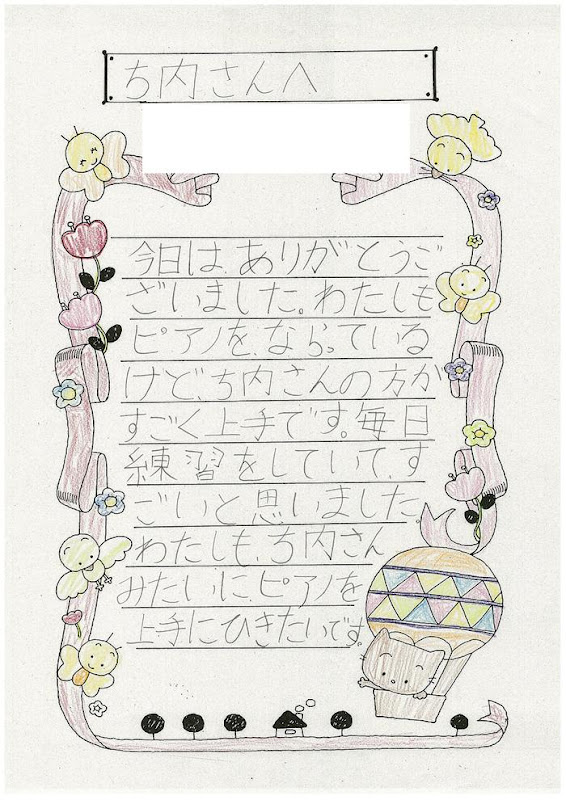 ち内さんへ
今日は、ありがとうご
ざいました。わたしも
ピアノを、ならっている
けど、ち内さんの方が
すごく上手です。毎日
練習をしていて、す
ごいと思いました。
わたしも、ち内さん
みたいに、ピアノを
上手にひきたいです。